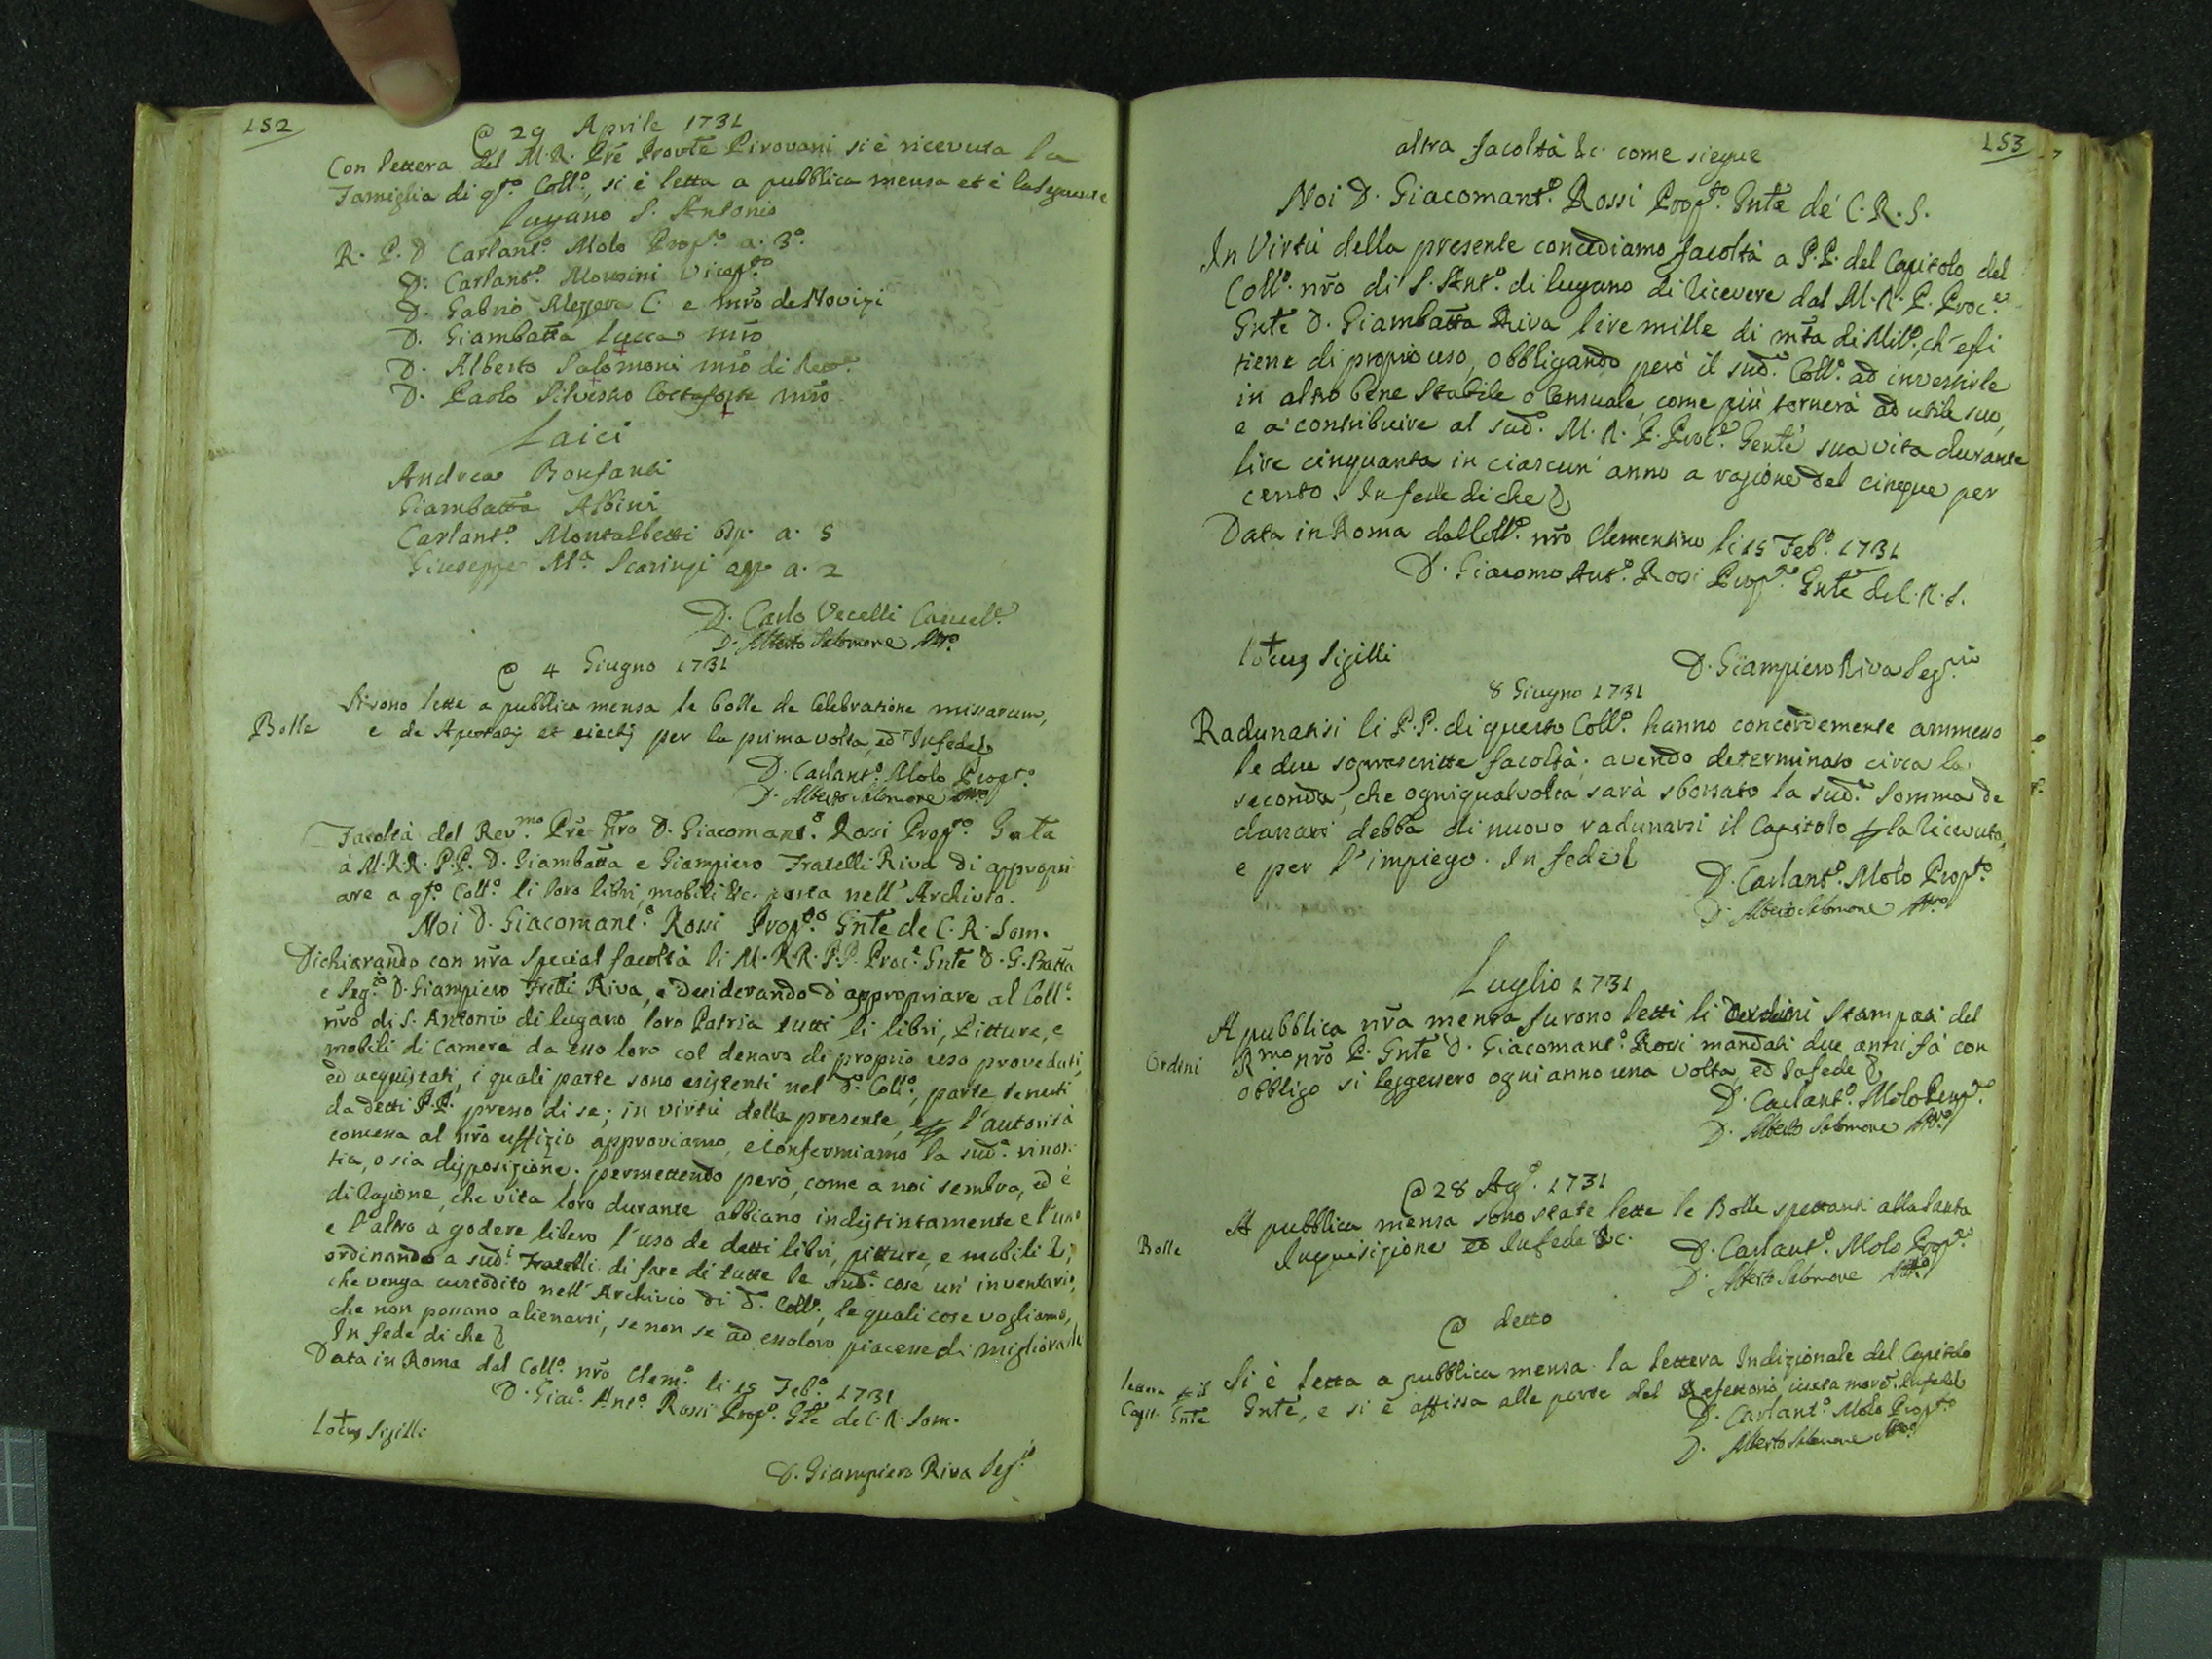 152
@ 29 Aprile 1731
Con lettera del M. R. Prē Provte Pirovani si è ricevuta la
Famiglia di qto. Collo., si è letta a pubblica mensa et è la seguente
Lugano S. Antonio
R. P. D Carlanto. Molo Propto. a. 3o.
D. Carlanto. Viceptō
D. Gabrio C. e mrō de Novizi
D. Giambatta Lucca mrō
D. Alberto Salomoni mrō di
D. Paolo Silvestro mrō
Laici
Andrea Bonfanti
Giambatta Albini
Carlanto. Montalbetti Osp. a. 5
Giuseppe Ma. Scaringi agg. a. 2
D. Carlo Vecelli Cancelre.
D. Alberto Salomone Atto.
@ 4 Giugno 1731
Bolle
Si sono lette a pubblica mensa le bolle de Celebratione missarum,
e de Apostatis et eiectis per la prima volta, ed In fede &
D. Carlanto. Molo Propto.
D. Alberto Salomone Atto.
Facoltà del Revmo. Prē nrō D. Giacomanto. Rossi Propto. Gnle
à M.RR. P.P. D. Giambatta e Giampiero Fratelli Riva di appropri
are a qto. Collo. li loro libri, mobili &c. posta nell' Archivio.
Noi D. Giacomanto. Rossi Propto. Gnle de C. R. Som.
Dichiarando con nrā Special facoltà li M. RR. P.P. Proce. Gnle D. G. Batta
e Segrio. D. Giampiero Frelli Riva, e desiderando d'appropriare al Collo.
nrō di S. Antonio di Lugano loro Patria tutti li libri, Pitture, e
mobili di Camera da esso loro col denaro di proprio uso proveduti,
ed acquistati, i quali parte sono esistenti nel do. Collo., parte tenuti
da detti P.P. presso di se; in virtù della presente, e per l'autorità
comessa al nrō uffizio approviamo, e confermiamo la suda. rinon-
tia, o sia disposizione; permettendo però, come a noi sembra, ed è
di ragione, che vita loro durante abbiano indistintamente e l'uno
e l'altro a godere libero l'uso de detti libri, pitture, e mobili &;
ordinando a sudi. Fratelli di fare di tutte le sude. cose un' inventario,
che venga custodito nell' Archivio di do. Collo., le quali cose vogliamo,
che non possano alienarsi, se non se ad essoloro piacesse di migliorarle
In fede di che &
Data in Roma dal Collo. nrō Clemo. li 15 Febo. 1731
D. Giaco. Anto. Rossi Propo. Gle de C. R. Som.
Lo+cus Sigilli
D. Giampiero Riva Segrio.
153
altra facoltà &c. come siegue
Noi D. Giacomanto. Rossi Propto. Gnle de' C. R. S.
In Virtù della presente concediamo facoltà a P.P. del Capitolo del
Collo. nrō di S. Anto. di Lugano di ricevere dal M. R. P. Proce.
Gnle D. Giambatta Riva lire mille di mta di Milo., ch'egli
tiene di proprio uso, obbligando però il sudo. Collo. ad investirle
in altro bene Stabile o Censuale, come più tornerà ad utile suo,
e a contribuire al sudo. M. R. P. Proce. Genle sua vita durante
lire cinquanta in ciascun' anno a ragione del cinque per
cento. In fede di che &
Data in Roma dal Collo. nrō Clementino li 15 Febo. 1731
D. Giacomo Anto. Rossi Propto. Gnle de C. R. S.
Lo+cus Sigilli
D. Giampiero Riva Segrio.
8 Giugno 1731
Radunatisi li P.P. di questo Collo. hanno concordemente ammesso
le due soprascritte facoltà; avendo determinato circa la
seconda, che ogniqualvolta sarà sborsato la suda. Somma de
danari debba di nuovo radunarsi il Capitolo per la ricevuta,
e per l'impiego. In fede &
D. Carlanto. Molo Propto.
D. Alberto Salomone Atto.
Luglio 1731
Ordini
A pubblica nrā mensa furono letti li Ordini Stampati del
Rmo nrō P. Gnle D. Giacomanto. Rossi mandati due anni fà con
obbligo si leggessero ogni anno una volta, ed In fede &
D. Carlanto. Molo Propto.
D. Alberto Salomone Atto.
@ 28 Ago. 1731
Bolle
A pubblica mensa sono state lette le Bolle spettanti alla Santa
Inquisizione ed In fede &c.
D. Carlanto. Molo Propto.
D. Alberto Salomone Atto.
@ detto
lettera per il
Capit. Gnle
Si è letta a pubblica mensa la lettera Indizionale del Capitolo
Gnle, e si è affissa alle porte del Refettorio iuxta morē. In fede &
D. Carlanto. Molo Propto.
D. Alberto Salomone Atto.